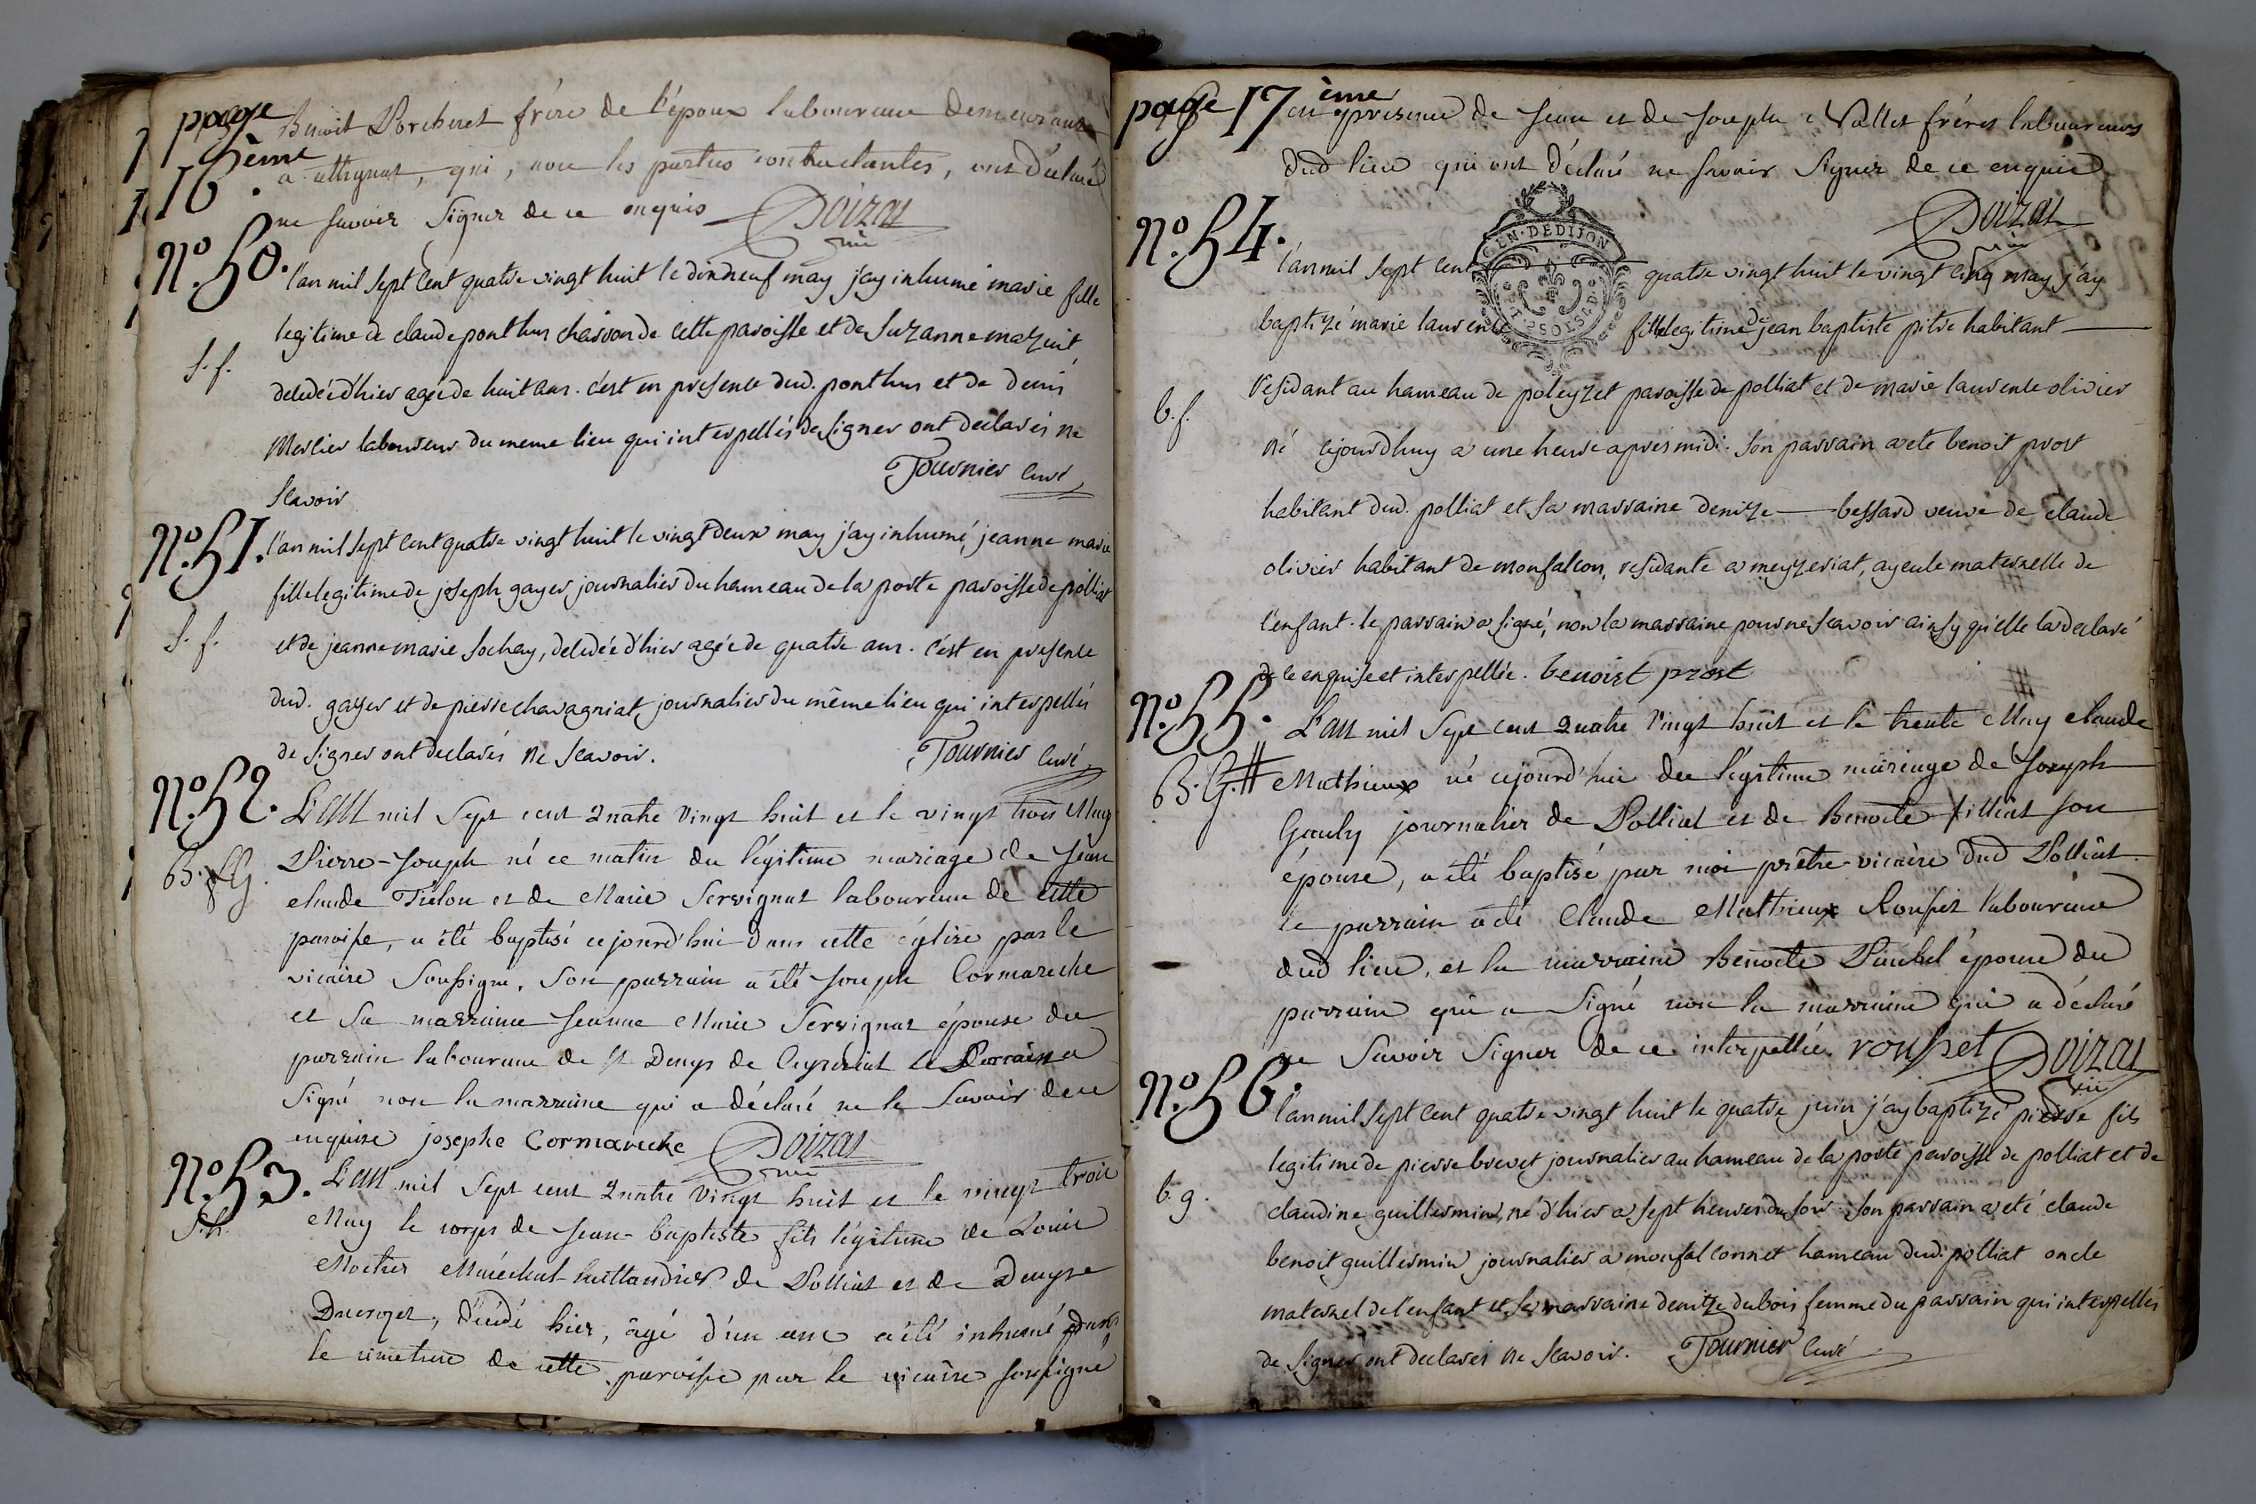 page
16 ème.
Benoit Porcheret frère de l'époux laboureur demeurant
a attignat, qui, non les parties contractantes, ont déclaré
ne savoir signer de ce enquis Doizat
vic
N.º 50.
l'an mil sept cent quatre vingt huit le dixneuf may j'ay inhumé marie fille
legitime de claude ponthus charron de cette paroisse et de suzanne mazuit
s. f.
decedée d'hier agée de huit ans. c'est en presence dud. ponthus et de denis
Merlier laboureur du meme lieu qui interpellés de signer ont declarés ne
scavoir
Tournier curé
N.º 51.
l'an mil sept cent quatre vingt huit le vingt deux may j'ay inhumé, jeanne marie
fille legitime de joseph gayer journalier du hameau de la poste paroisse de polliat
s. f.
et de jeanne marie sochay, decedée d'hier agée de quatre ans. c'est en presence
dud. gayer et de pierre chavagniat journalier du même lieu qui interpellés
de signer ont declarés ne scavoir. Tournier curé
N.º 52.
L'an mil sept cent quatre vingt huit et le vingt trois May
B. G.
Pierre-Joseph né ce matin du légitime mariage de Jean
claude Tielou et de Marie Servignat laboureur de cette
paroisse, a été baptisé cejourd'hui dans cette église par le
vicaire soussigné. Son parrain a été Joseph Cormareche
et sa marraine Jeanne Marie Servignat épouse du
parrain laboureur de St Denys de Ceyzériat Le Parrain a
signé non la marraine qui a déclaré ne le savoir de ce
enquise josephe Cormareche Doizat
vic
N.º 53.
L'an mil sept cent quatre vingt huit et le vingt trois
S. h.
May le corps de Jean-baptiste fils légitime de Louis
Moctier Maréchal-taillandier de Polliat et de Denyse
Ducroget, décédé hier, âgé d'un an a été inhumé dans
le cimetiere de cette paroisse par le vicaire soussigné
page 17 ème
en presence de Jean et de Joseph Vallet frères laboureurs
dud lieu qui ont déclaré ne savoir signer de ce enquis
Doizat
vic
N.º 54.
GEN. DE DIJON
2. SOLS. 4. D.
l'an mil sept cent quatre vingt huit le vingt cinq may j'ay
baptizé marie laurence fille legitime de jean baptiste pitre habitant
residant au hameau de poleyzet paroisse de polliat et de marie laurence olivier
b. f.
né cejourdhuy a une heure apres midi. son parrain a eté benoit prost
habitant dud. polliat et sa marraine denize bessard veuve de claude
olivier habitant de monfalcon, residante a meyzeriat, ayeule maternelle de
l'enfant. le parrain a signé, non la marraine pour ne scavoir ainsy qu'elle la declaré
de ce enquise et interpellée. benoist prost
N.º 55.
L'an mil sept cent quatre vingt huit et le trente May claude
B. G. #
Mathieux né cejourd'hui du légitime mariage de Joseph
Gauly journalier de Polliat et de Benoite filliat son
épouse, a été baptisé par moi prêtre-vicaire dud Polliat.
le parrain a été Claude Mathieux Rousset laboureur
dud lieu, et la marraine Benoite Pauchel épouse du
parrain qui a signé non la marraine qui a déclaré
ne savoir signer de ce interpellée. rousset Doizat
vic
N.º 56.
l'an mil sept cent quatre vingt huit le quatre juin j'ay baptizé pierre fils
legitime de pierre brevet journalier au hameau de la poste paroisse de polliat et de
b. g.
claudine guillermin, né d'hier a sept heures du soir. son parrain a eté claude
benoit guillermin journalier a monfalconnet hameau dud. polliat oncle
maternel de l'enfant et sa marraine denize dubois femme du parrain qui interpellés
de signer ont declarés ne scavoir. Tournier curé